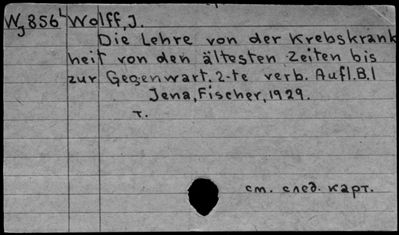 Wj856⁴ Wolff, J.
Die Lehre von der Krebskrank
heit von den ältesten Zeiten bis
zur Gegenwart. 2-te verb. Aufl. B. I
Jena, Fischer, 1929.
т.
см. след. карт.